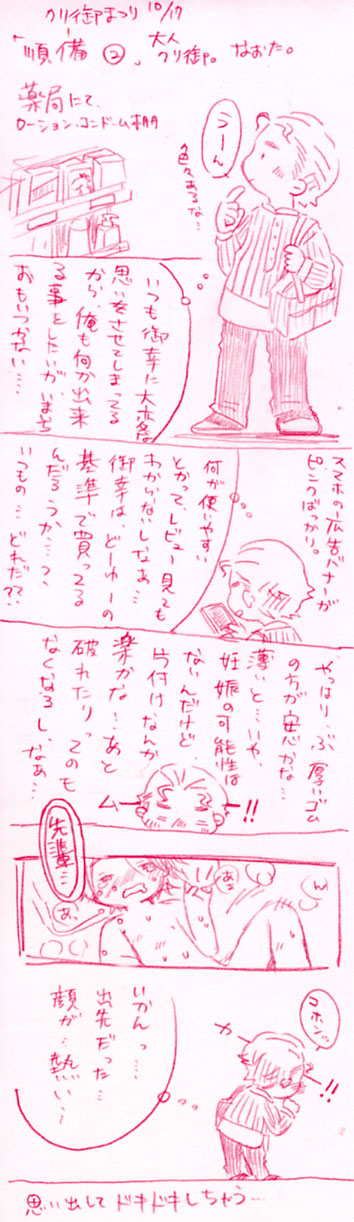 クリ御まつり 10/17
「順備②」大人クリ御。なおた。
薬局にて、
ローション・コンドーム棚
うーん
色々あるな…
いつも御幸に大変な
思いをさせてしまってる
から、俺も何か出来
る事をしたいが、いまいち
おもいつかない…
スマホの広告バナーが
ピンクばっかり。
何が使いやすい
とかって、レビュー見ても
わからないしなぁ…
御幸は、どーゆーの
基準で買ってる
んだろうか…?、
いつもの…どれだ??
やっぱり、ぶ厚いゴム
の方が安心かな…
薄いと…いや、
妊娠の可能性は
ないんだけど、
片付けなんか
楽かな…あと
破れたりってのも
なくなるし、なぁ…
ム
!!
先輩…
あっ
あ、
コホンッ
カー
!!
いかんっ…
出先だった…
顔が…熱い…
思い出してドキドキしちゃう…